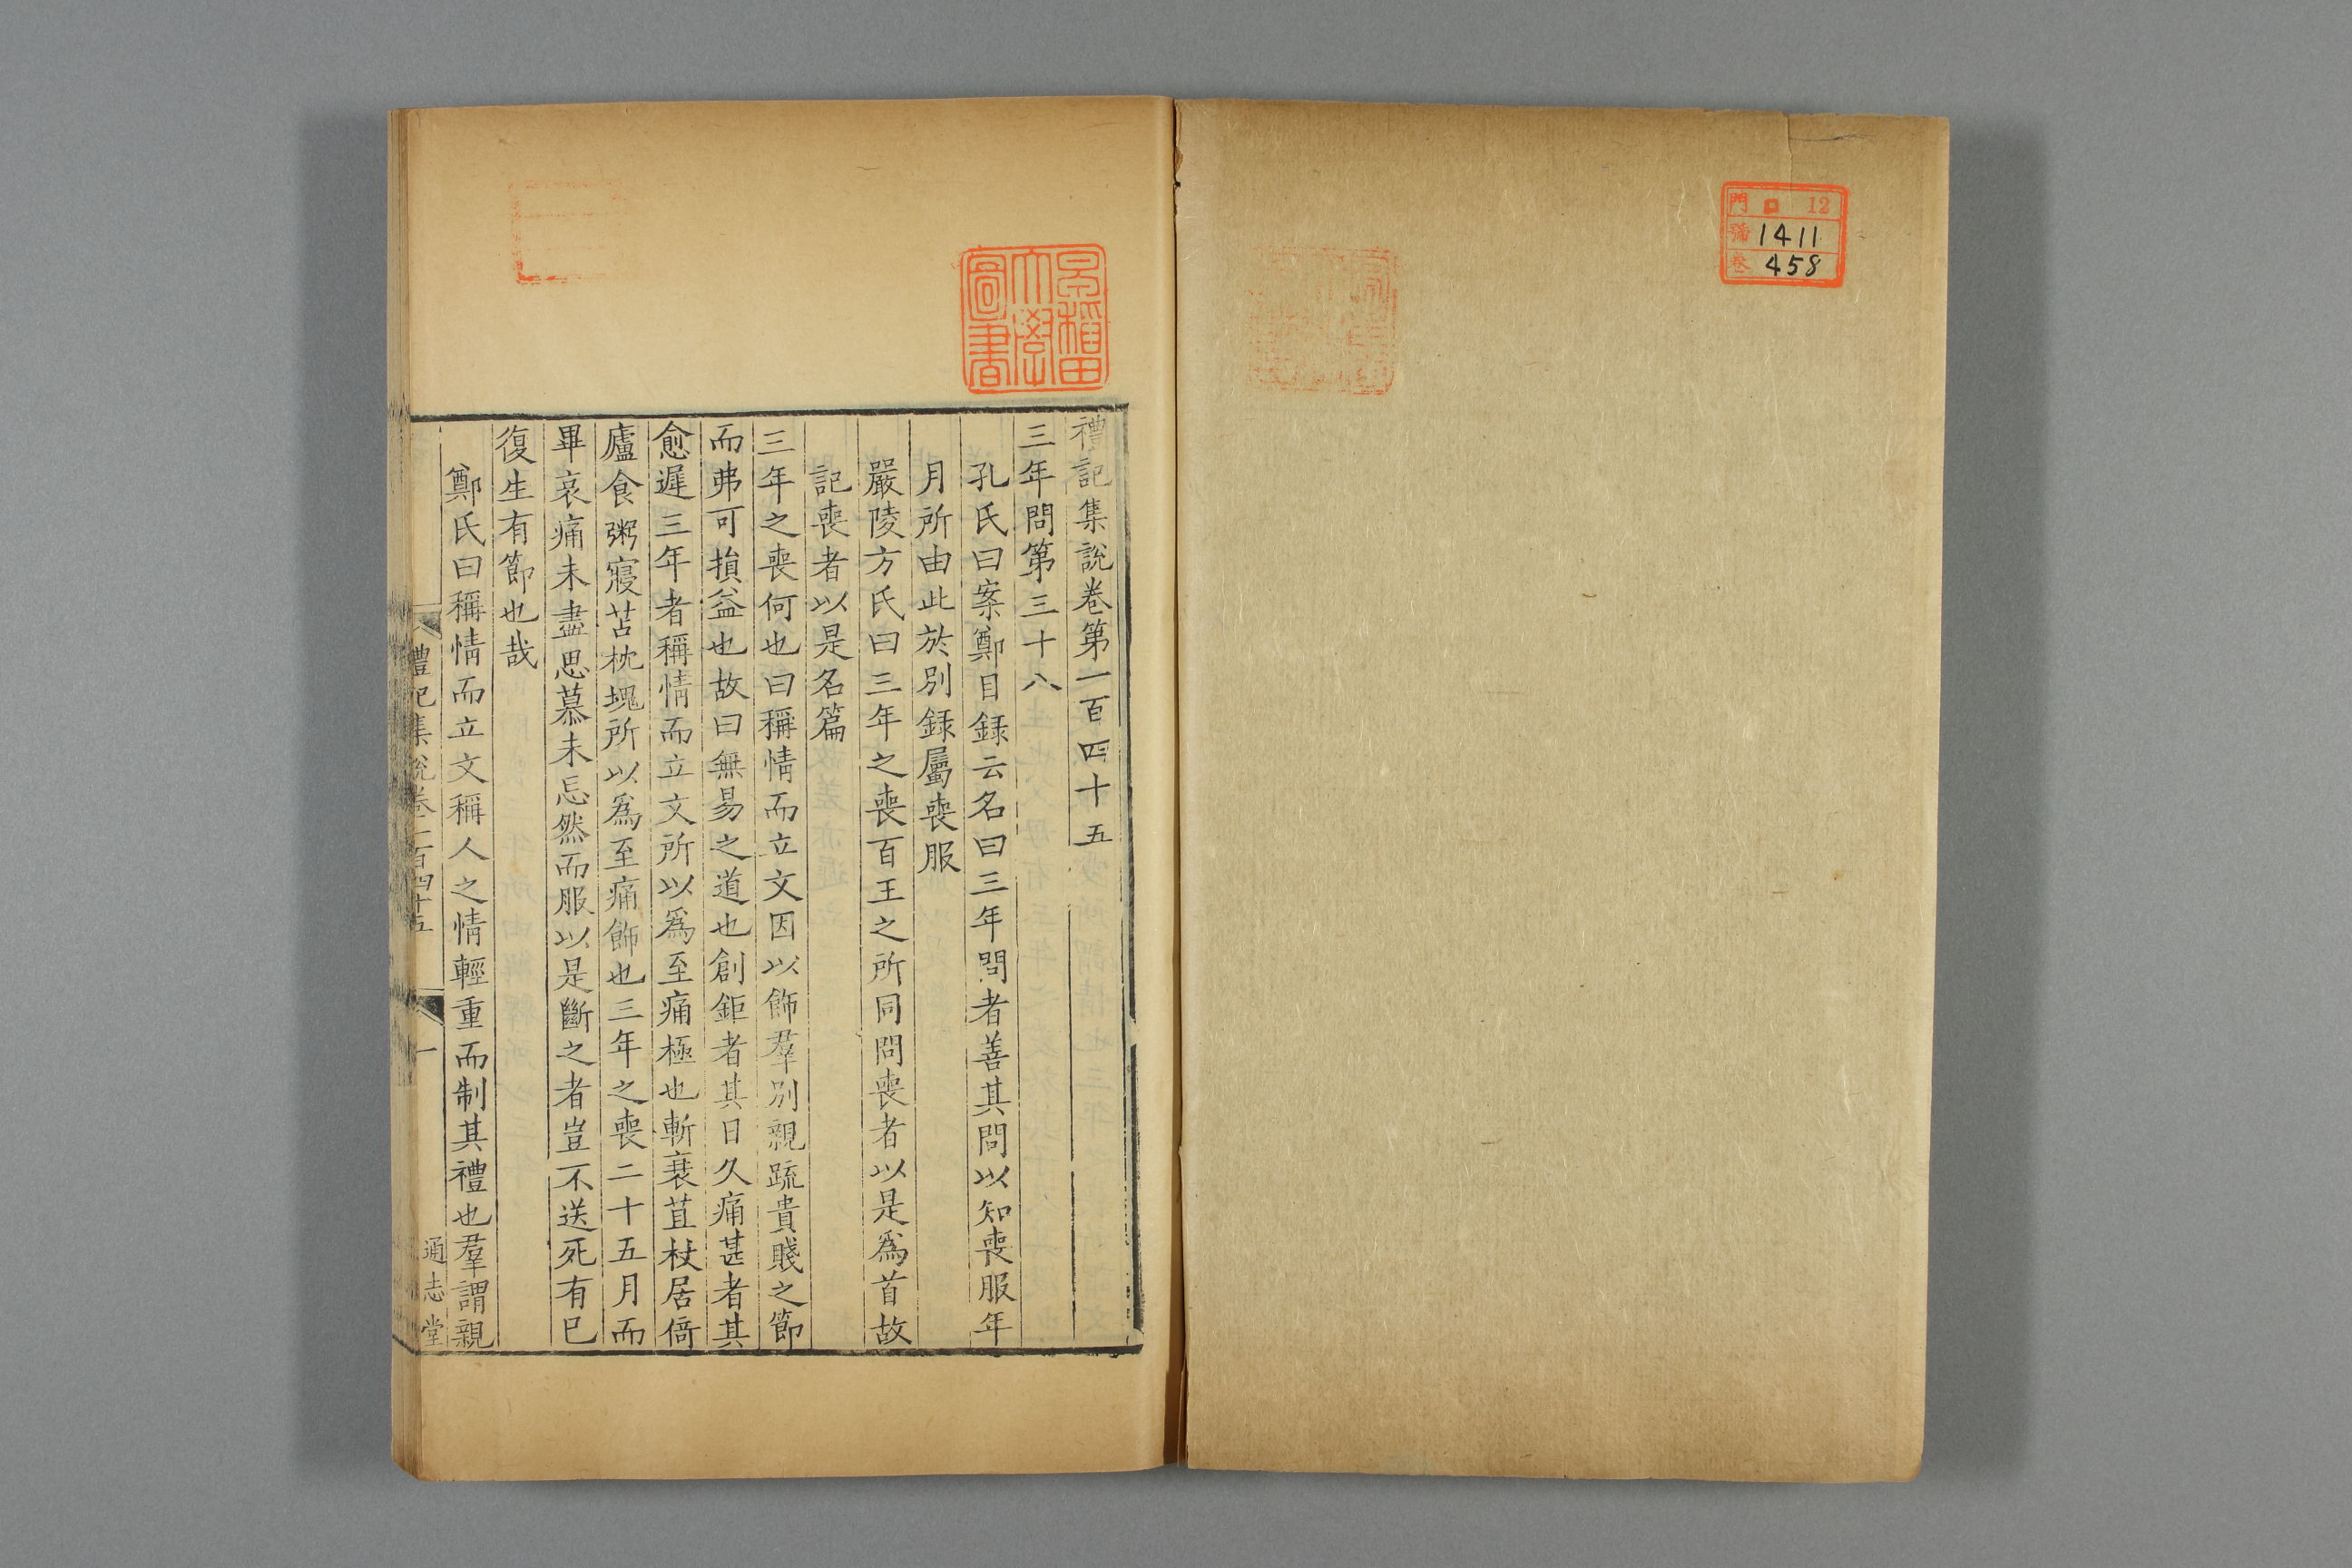 門 ロ 12
號 1411
卷 458
早稲田
大學
圖書
禮記集說卷第一百四十五
三年問第三十八
孔氏曰案鄭目録云名曰三年問者善其問以知喪服年
月所由此於別録屬喪服
嚴陵方氏曰三年之喪百王之所同問喪者以是爲首故
記喪者以是名篇
三年之喪何也曰稱情而立文因以飾羣別親疏貴賤之節
而弗可損益也故曰無易之道也創鉅者其日久痛甚者其
愈遲三年者稱情而立文所以爲至痛極也斬衰苴杖居倚
廬食粥寢苫枕塊所以爲至痛飾也三年之喪二十五月而
畢哀痛未盡思慕未忘然而服以是斷之者豈不送死有已
復生有節也哉
鄭氏曰稱情而立文稱人之情輕重而制其禮也羣謂親
禮記集說卷一百四十五
一
通志堂